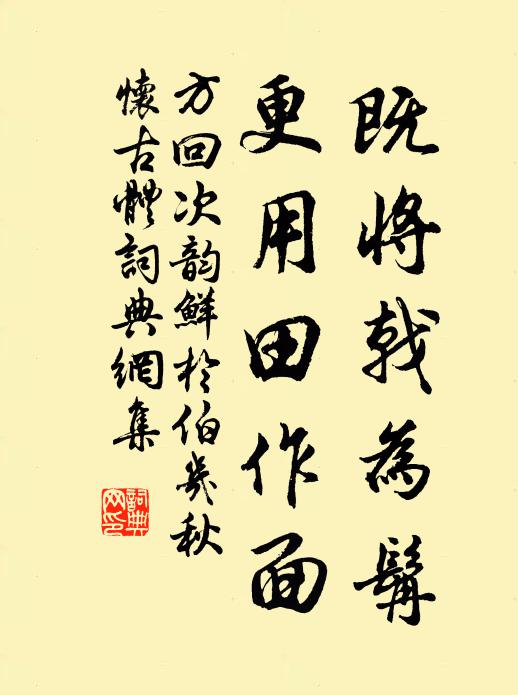 既将戟為髯
更用田作面
方回次韵鮮于伯幾秋
懷古體詞典網集
詞典網印